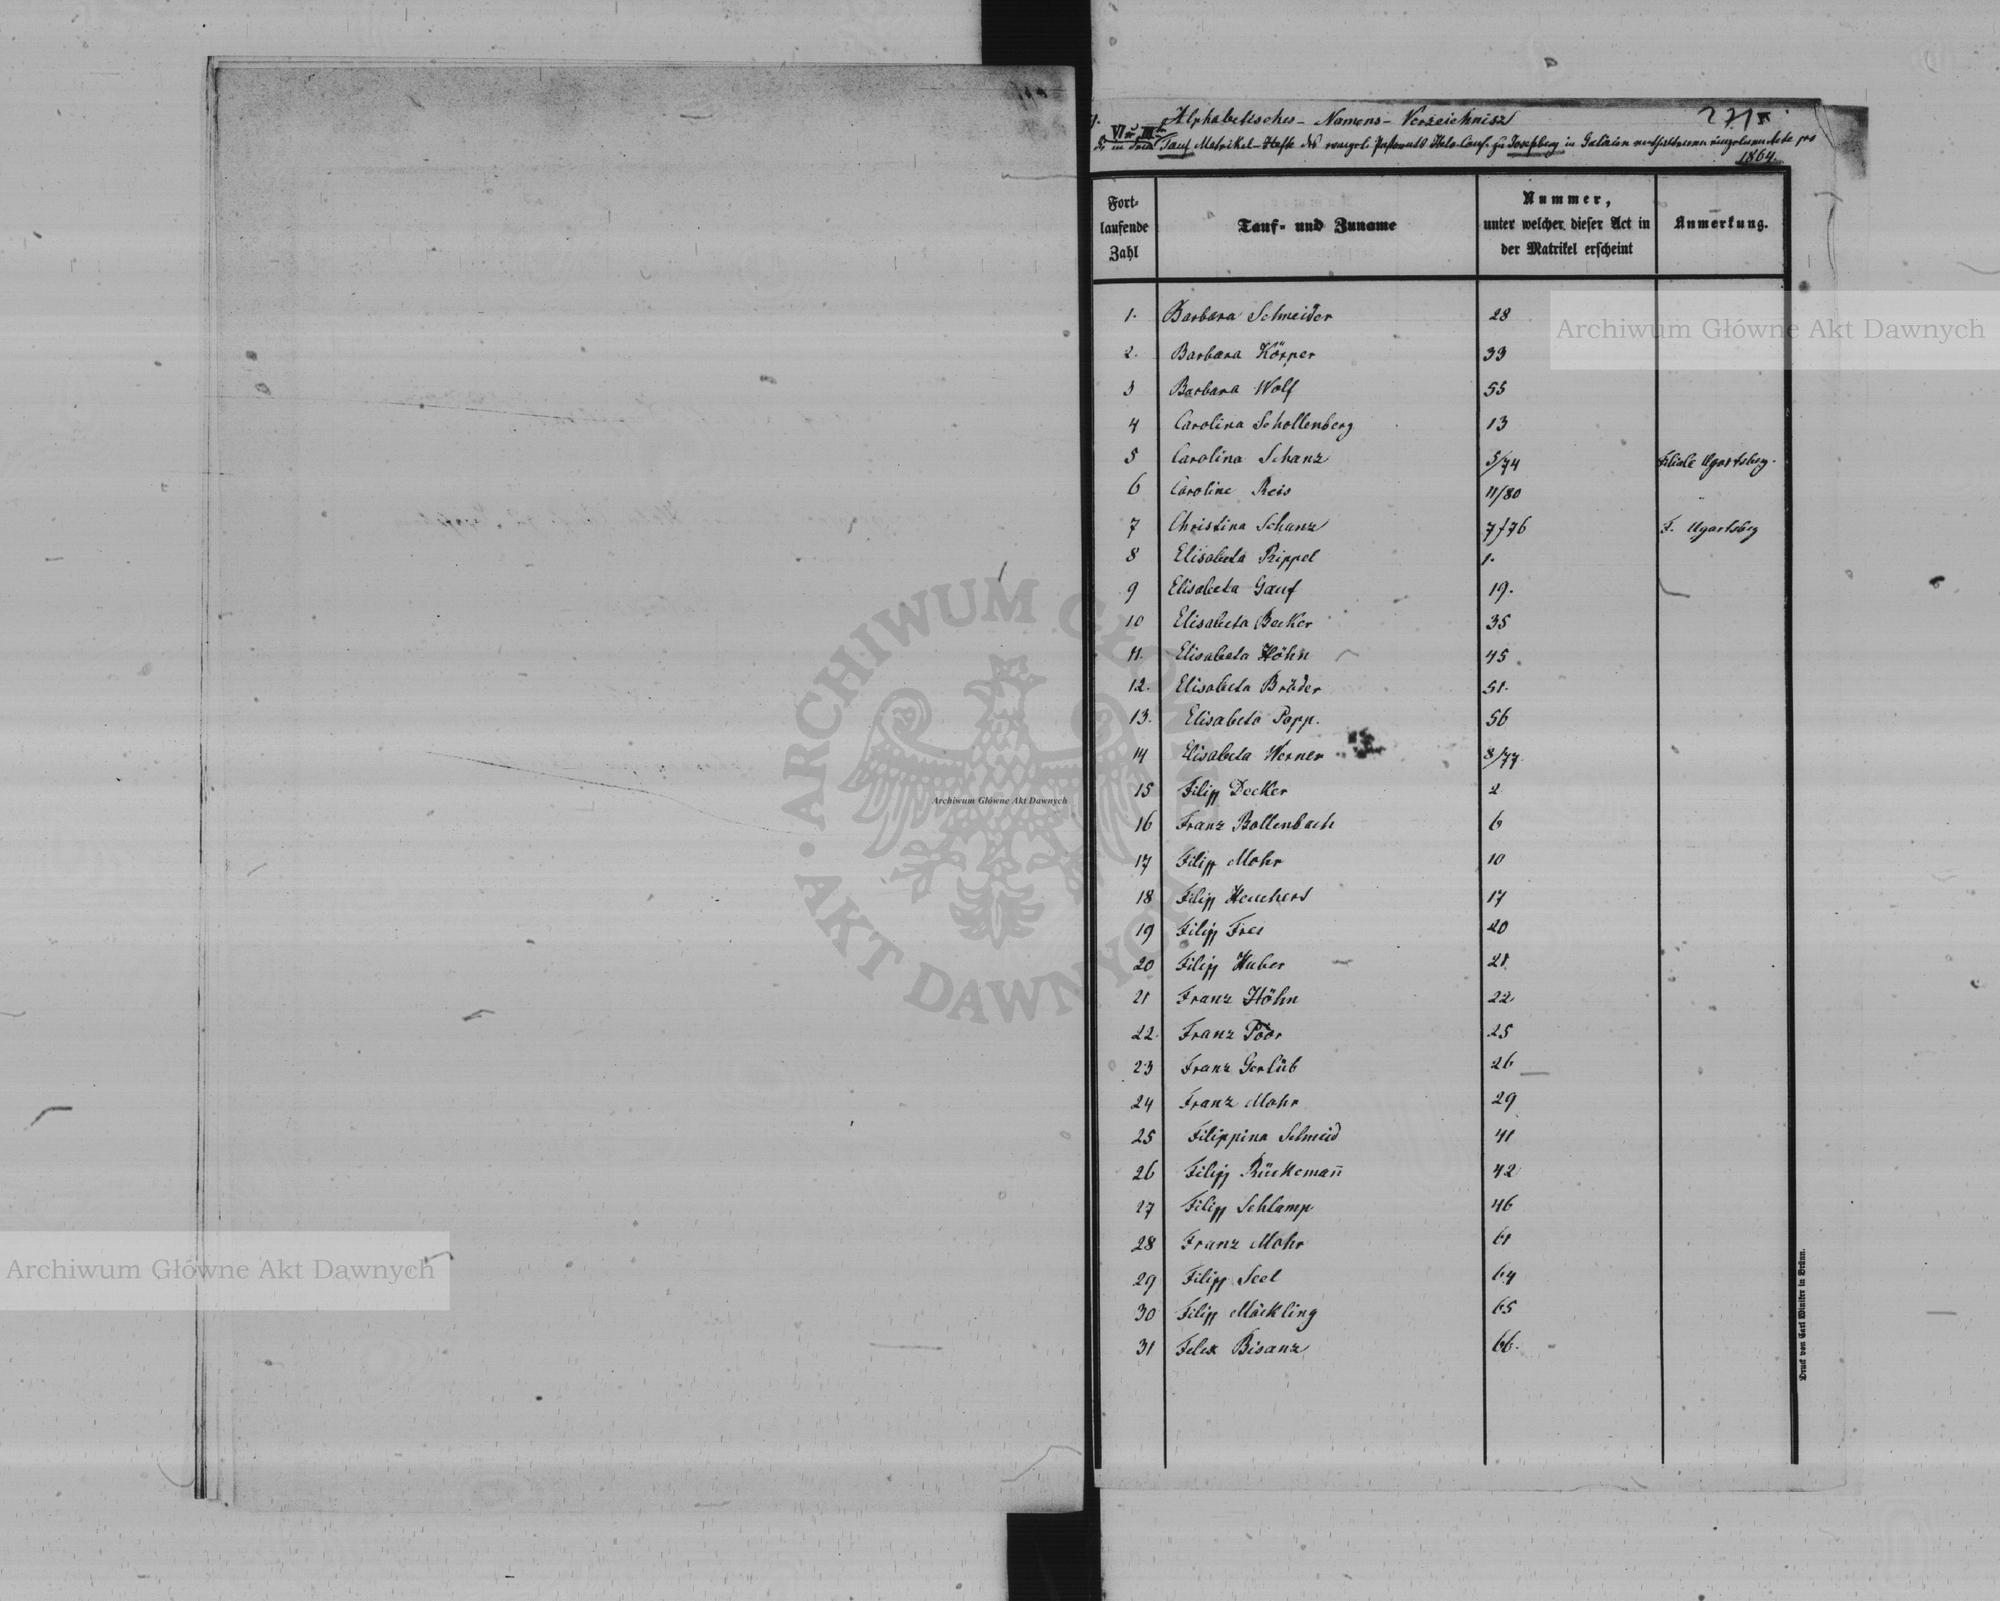 Alphabetisches-Namens-Verzeichnisz
271
Tauf Matrikel-Hefte des evangel. Pastorats Helv. Conf. zu Josefsberg in Galizien
1864.
Fort-
laufende
Zahl
Tauf- und Zuname
Nummer,
unter welcher dieser Act in
der Matrikel erscheint
Anmerkung.
1. Barbara Schneider 28
2. Barbara Körper 33
3 Barbara Wolf 55
4 Carolina Schollenberg 13
5 Carolina Schanz 5/74 Filiale Ugartsberg.
6 Caroline Reis 11/80 "
7 Christina Schanz 7/76 F. Ugartsberg
8 Elisabeta Rippel 1.
9 Elisabeta Gauf 19.
10 Elisabeta Becker 35
11. Elisabeta Höhn 45
12. Elisabeta Bräder 51.
13. Elisabeta Popp. 56
14 Elisabeta Werner 8/77
15 Filipp Decker 2
16 Franz Bollenbach 6
17 Filipp Mohr 10
18 Filipp Heuchert 17
19 Filipp Frei 20
20 Filipp Huber 21
21 Franz Höhn 22
22. Franz Pöor 25
23 Franz Gerlüb 26
24 Franz Mohr 29
25 Filippina Schmid 41
26 Filipp Rückeman̄ 42
27 Filipp Schlamp 46
28 Franz Mohr 61
29 Filipp Seel 64
30 Filipp Möckling 65
31 Felix Bisanz 66.
Druck von Carl Winiker in Brünn.
Archiwum Główne Akt Dawnych
ARCHIWUM GŁÓWNE AKT DAWNYCH
Archiwum Główne Akt Dawnych
Archiwum Główne Akt Dawnych